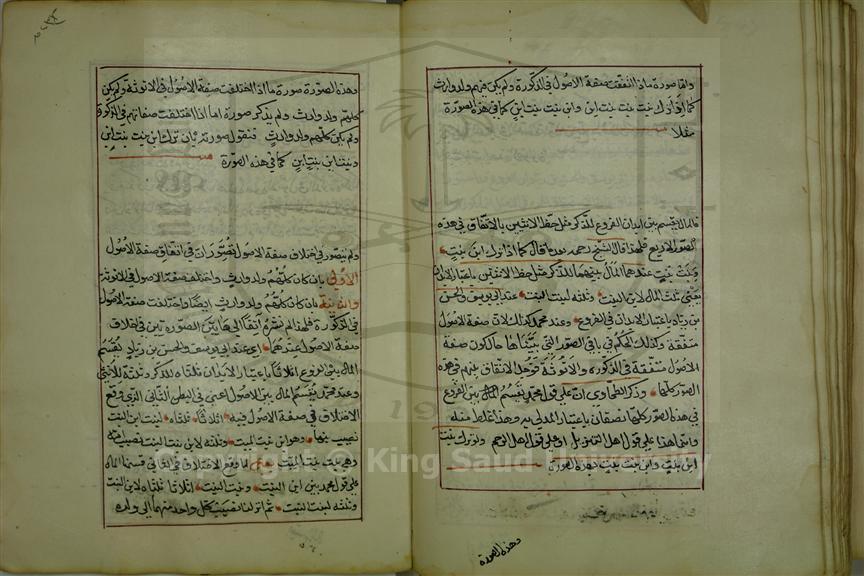 واما صورة ما اذا اتفقت صفة الاصول في الذكورة ولم يكن فيهم ولد وارث
كما اذا ترك بنت بنت بنت ابن وابن بنت بنت ابن كما في هذه الصورة
مثلا
فالمال يقسم بين ابدان الفروع للذكر مثل حظ الانثيين بالاتفاق في هذه
الصور الاربع فلهذا قال الشيخ رحمه كما اذا ترك ابن بنت
وبنت بنت عندهما المال بينهما للذكر مثل حظ الانثيين باعتبار الابدان
يعني ثلثا المال لابن البنت وثلثه لبنت البنت عند ابي يوسف والحسن
بن زياد باعتبار الابدان في الفروع وعند محمد كذلك لان صفة الاصول
متفقة وكذلك الحكم في باقي الصور التي بيناها حال كون صفة
الاصول متفقة في الذكورة والانوثة الاتفاق بينهم في هذه
الصور كلها وذكر الطحاوي ان على قول محمد يقسم المال بين الفروع
في هذه الصور كلها نصفان باعتبار المدلى بهم وهذا غلط منه
وانما هذا على قول اهل التنزيل او على قول اهل الرحم ولو ترك بنت
ابن بنت وابن بنت بنت بهذه الصورة
وهذه الصورة
وهذه الصورة صورة ما اذا اختلفت صفة الاصول في الانوثة ولم يكن
كلهم ولد وارث ولم يذكر صورة اما اذا اختلفت صفاتهم في الذكورة
ولم يكن كلهم ولد وارث فنقول صورته بان ترك ابن بنت بنت ابن
وبنت ابن بنت ابن كما في هذه الصورة
ولم يتصور في اختلاف صفة الاصول في اتفاق صفة الاصول
الاولى بان كان كلهم ولد وارث واختلف صفة الاصول في الانوثة
والثانية بان كان كلهم ولد وارث ايضا واختلفت صفة الاصول
في الذكورة فلهذا لم الى هاتين الصورتين في اختلاف
صفة الاصول عندهما اي عند ابي يوسف والحسن بن زياد يقسم
المال بين الفروع اثلاثا باعتبار الابدان ثلثاه للذكر وثلثه للانثى
وعند محمد يقسم المال بين الاصول اعني في البطن الثاني الذي وقع
الاختلاف في صفة الاصول فيه اثلاثا ثلثاه لبنت ابن البنت
نصيب ابيها وهو ابن بنت الميت وثلثه لابن بنت البنت نصيب امه
وهي بنت بنت الميت يعني لما وقع الاختلاف في الثاني قسمنا المال
على قول محمد بين ابن البنت وبنت البنت اثلاثا ثلثاه لابن البنت
وثلثه لبنت البنت ثم انزلنا نصيب كل واحد منهما الى ولده
© King Saud University